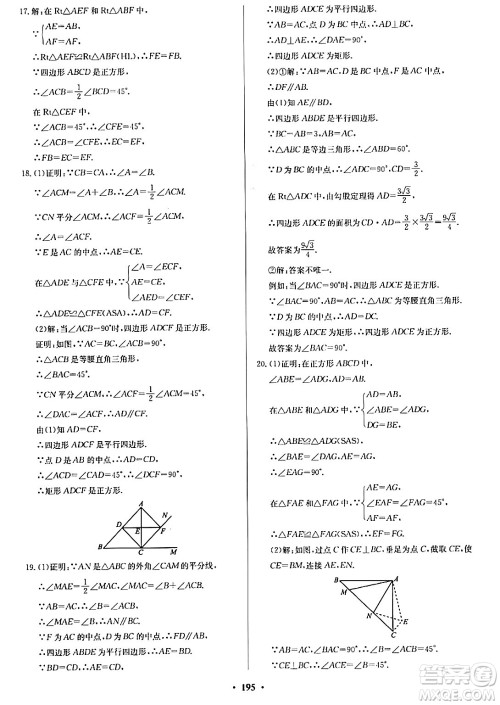 17. 解:在 Rt△AEF 和 Rt△ABF 中,
∵ AE=AB,
AF=AF,
∴Rt△AEF≌Rt△ABF(HL).∴FB=FE.
∵四边形 ABCD 是正方形,
∴∠ACB=1/2∠BCD=45°.
在 Rt△CEF 中,
∵∠ACB=45°,∴∠CFE=45°.
∴∠ACB=∠CFE.∴EC=EF.
∴FB=EC=EF.
18. (1)证明:∵CB=CA,∴∠A=∠B.
∵∠ACM=∠A+∠B,∴∠A=1/2∠ACM.
∵CN 平分∠ACM,∴∠ECF=1/2∠ACM.
∴∠A=∠ECF.
∵点 E 为 AC 的中点,∴AE=CE.
在△ADE 与△CFE 中,∵ ∠A=∠ECF,
AE=CE,
∠AED=∠CEF,
∴△ADE≌△CFE(ASA).
(2)解:当∠ACB=90°时,四边形 ADCF 是正方形.
证明:如图,∵∠ACB=90°,
∴△ACB 是等腰直角三角形.
∴∠CAB=45°,∠ACM=90°.
∵CN 平分∠ACM,∴∠ACF=1/2∠ACM=45°.
∴∠DAC=∠ACF.∴AD∥CF.
由(1)知△ADE≌△CFE,∴AD=CF.
∴四边形 ADCF 是平行四边形.
∵点 D 是 AB 的中点,∴CD⊥AB.
∴∠ACD=∠CAD=45°.∴∠DCF=90°.
∴矩形 ADCF 是正方形.
A
D
E
F
N
B
C
M
19. (1)证明:∵AN 是△ABC 的外角∠CAM 的平分线,
∴∠MAE=1/2∠MAC.
∵∠MAC=∠B+∠ACB,
∵AB=AC,∴∠B=∠ACB.
∴∠MAE=∠B.∴AN∥BC.
∵AB=AC,点 D 为 BC 的中点,∴AD⊥BC.
∵F 为 AC 的中点,DF=EF,
∴四边形 ADCE 为平行四边形.∴CD=AE.
∵BD=CD,∴AE=BD.
∴四边形 ABDE 为平行四边形.
∴四边形 ADCE 为平行四边形.
∵AD⊥AE,∴四边形 ADCE 为矩形.
(2)①解:∵AB=AC=3,点 D 为 BC 的中点,
∴DF∥AB.
由(1)知四边形 ABDE 是平行四边形.
∵BC=AB=3,AB=AC,
∴△ABC 为等边三角形.∴∠ACD=60°.
∵D 为 BC 的中点,∴CD=3/2.
在 Rt△ADC 中,由勾股定理得 AD=3√3/2.
∴四边形 ADCE 的面积为 CD·AD=3/2×3√3/2=9√3/4.
故答案为9√3/4.
②解:答案不唯一.
例如:当∠BAC=90°时,四边形 ADCE 是正方形.
∵∠BAC=90°,AB=AC,AD⊥BC,
∴∠ACD=∠CAD=45°.∴AD=CD.
∵四边形 ADCE 为矩形,
∴四边形 ADCE 为正方形.
故答案为∠BAC=90°.
20. (1)证明:在正方形 ABCD 中,
∠ABE=∠ADG,AD=AB,
在△ABE 和△ADG 中, AD=AB,
∠ABE=∠ADG,
DG=BE,
∴△ABE≌△ADG(SAS).
∴∠BAE=∠DAG,AE=AG.
∴∠EAG=90°.
在△FAE 和△GAF 中, AE=AG,
∠EAF=∠FAG,
AF=AF,
∴△FAE≌△GAF(SAS).∴EF=FG.
(2)解:如图,过点 C 作 CE⊥BC,垂足为点 C,截取 CE,使 CE=BM.连接 AE,EN.
B
A
M
N
E
C
∵AB=AC,∠BAC=90°,∴∠B=∠ACB=45°.
∵CE⊥BC,∴∠ACE=∠B=45°.
195